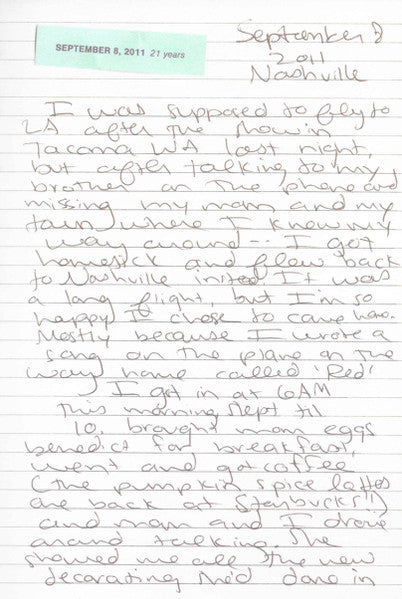 SEPTEMBER 8, 2011 21 years
September 8
2011
Nashville
I was supposed to fly to
LA after the show in
Tacoma WA last night,
but after talking to my
brother on the phone and
missing my mom and my
town where I know my
way around -- I got
homesick and flew back
to Nashville insted. It was
a long flight, but I'm so
happy I chose to come home.
Mostly because I wrote a
song on the plane on the
way home called 'Red'
I got in at 6AM
this morning, slept till
10. brought mom eggs
benedict for breakfast,
went and got coffee
(the pumpkin spice lattes
are back at Starbucks!!)
and mom and I drove
around talking. She
showed me all the new
decorating she'd done in